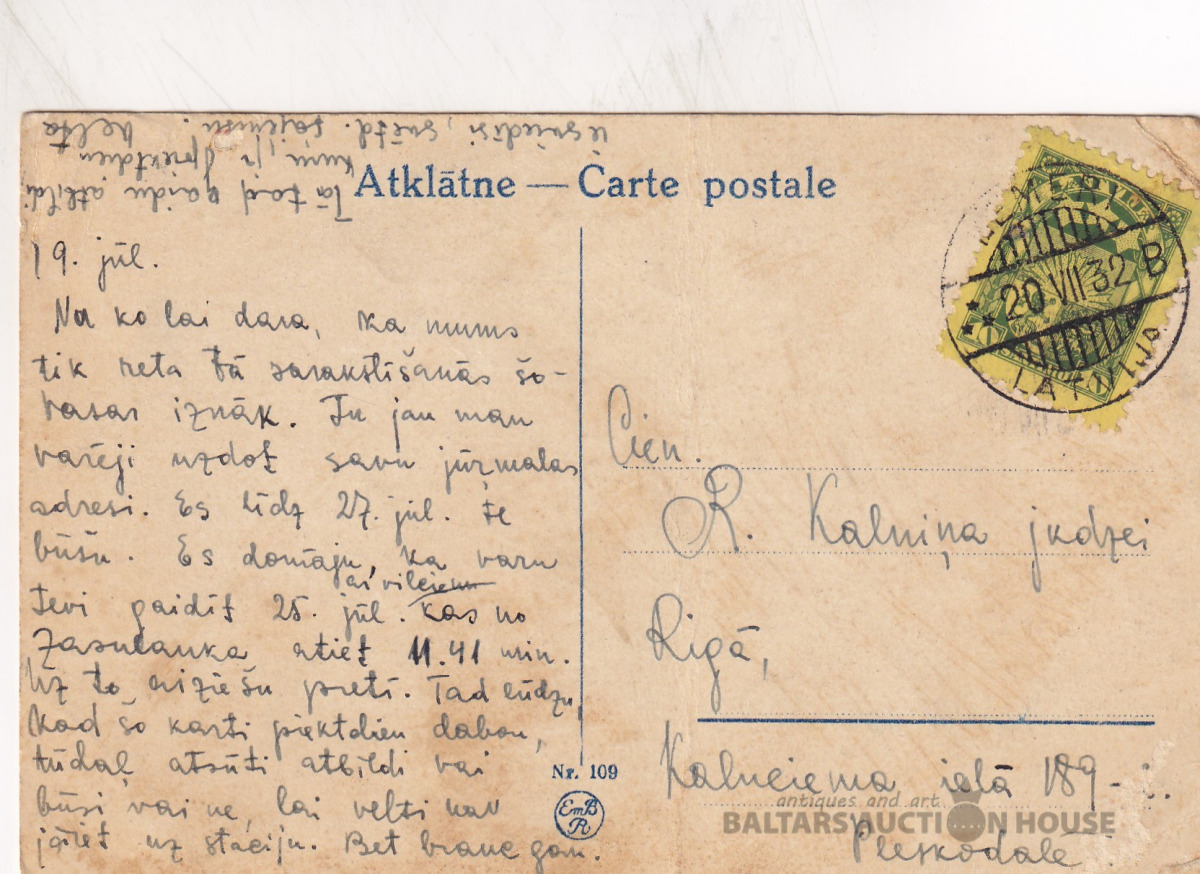 Atklātne — Carte postale
19. jūl.
Nu ko lai dara, ka mums
tik reta tā sarakstīšanās šo-
vasar iznāk. Tu jau man
varēji uzdot savu jūrmalas
adresi. Es līdz 27. jūl. te
būšu. Es domāju, ka varu
ar vilcienu
Tevi gaidīt 25. jūl. kas no
Zasulauka atiet 11.41 min.
Uz to aiziešu pretī. Tad lūdzu,
kad šo karti piektdien dabon,
tūdaļ atsūti atbildi vai
būsi vai ne, lai velti nav
jāiet uz staciju. Bet brauc gan.
Tā tad gaidu atbildi
kuru, piektdien
iesviedīsi, svētd. saņemšu.
LATVIJA
20 VII 32 B
LATVIJA
Cien.
R. Kalniņa jkdzei
Rigā,
Kalnciema ielā 189-
Pleskodalē
Nr. 109
EmB
R
antiques and art
BALTARS AUCTION HOUSE